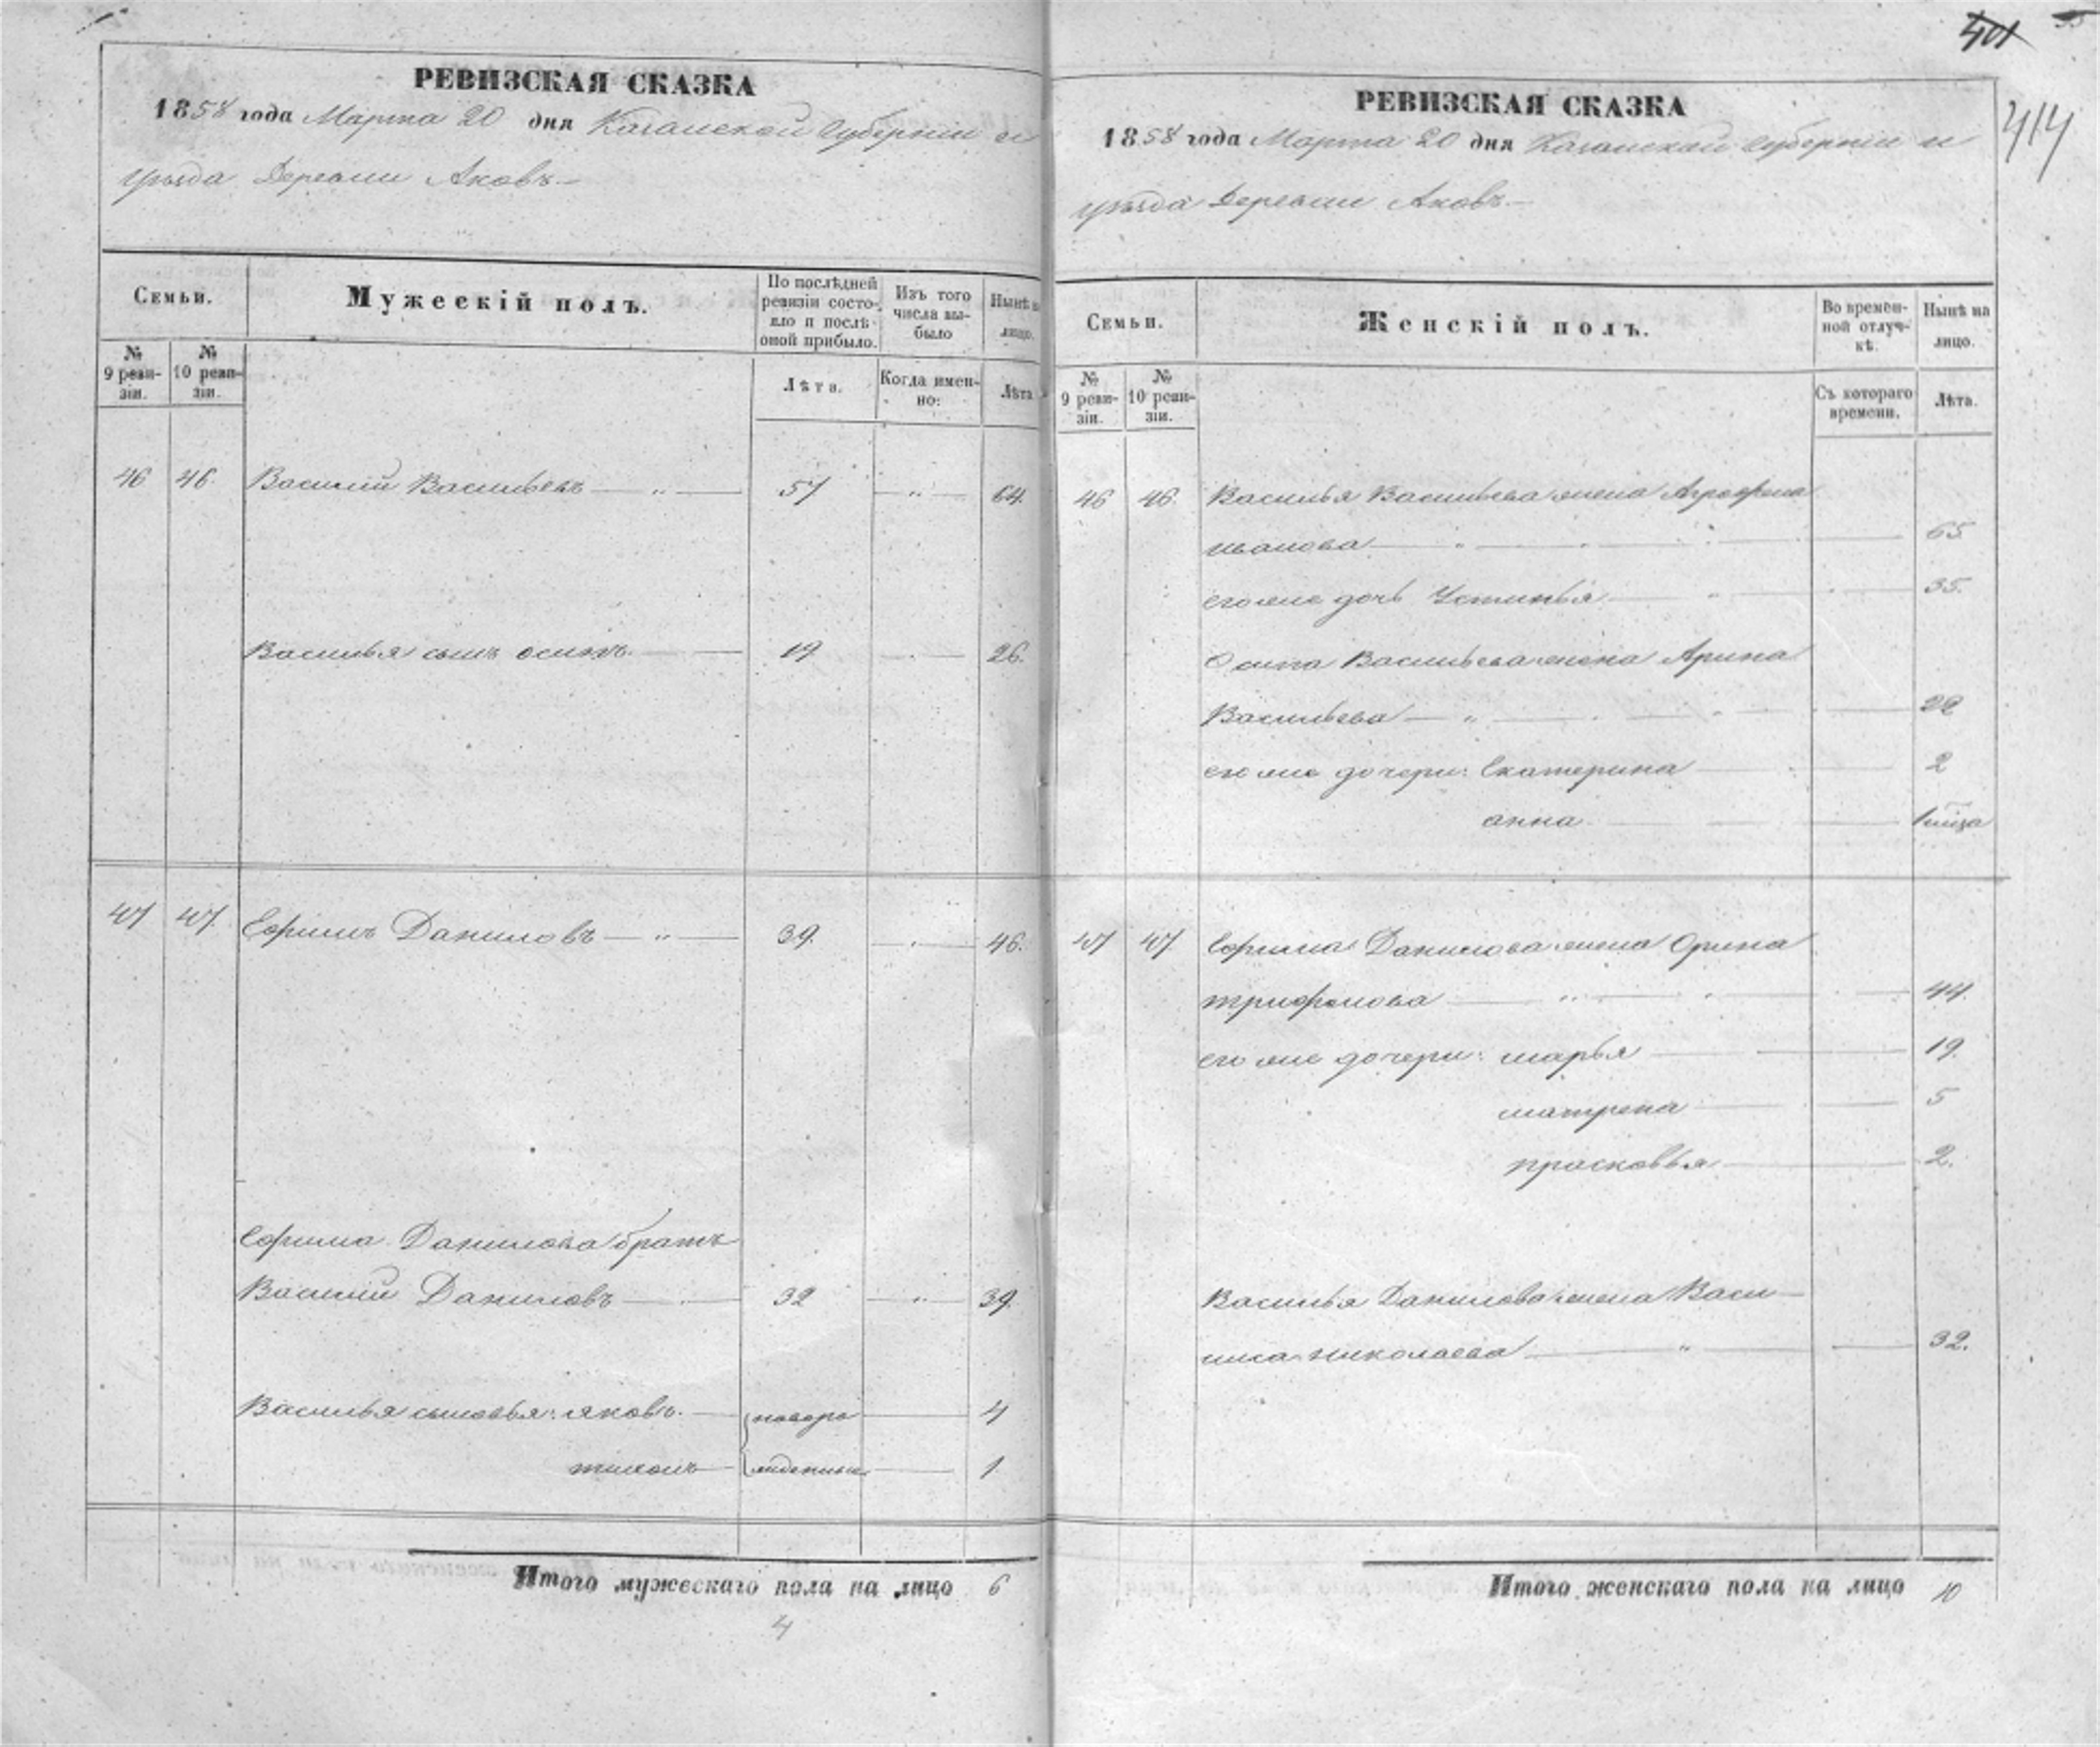 РЕВИЗСКАЯ СКАЗКА
1858 года Марта 20 дня Казанской Губерніи и
уѣзда Деревни Аковъ
Семьи.
Мужескій полъ.
По послѣдней ревизіи состояло и послѣ оной прибыло.
Изъ того числа выбыло
Нынѣ на лицо.
№ 9 ревизіи.
№ 10 ревизіи.
Лѣта.
Когда именно:
Лѣта
46 46. Василій Васильевъ — „ — 57 — „ — 64.
Василья сынъ осипъ. 19 26.
47 47. Ефимъ Даниловъ — „ — 39. 46.
Ефима Данилова братъ
Василій Даниловъ 32 — „ — 39.
Василья сыновья: яковъ. новоро 4
тихонъ жденные 1
Итого мужескаго пола на лицо 6
4
401
414
РЕВИЗСКАЯ СКАЗКА
1858 года Марта 20 дня Казанской Губерніи и
уѣзда Деревни Аковъ
Семьи.
Женскій полъ.
Во временной отлучкѣ.
Нынѣ на лицо.
№ 9 ревизіи.
№ 10 ревизіи.
Съ котораго времени.
Лѣта.
46 46. Василья Васильева жена Аграфена
иванова 65
его же дочь Устинья 35.
Осипа Васильева жена Арина
Васильева 22
его же дочери: Екатерина 2
анна 1 мѣсца
47 47 Ефима Данилова жена Орина
трифонова 44.
его же дочери: марья 19.
матрена 5
прасковья 2.
Василья Данилова жена Васи-
лиса николаева 32.
Итого женскаго пола на лицо 10